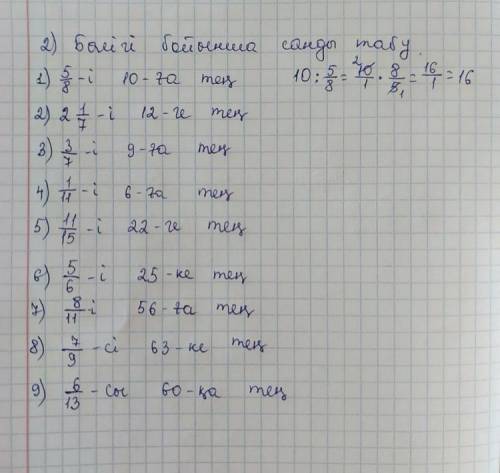 2) Бөлігі бойынша санды табу.
1) 5/8 -і 10-ға тең 10 : 5/8 = 10/1 · 8/5 = 16/1 = 16
2) 2 1/7 -і 12-ге тең
3) 3/7 -і 9-ға тең
4) 1/11 -і 6-ға тең
5) 11/15 -і 22-ге тең
6) 5/6 -і 25-ке тең
7) 8/11 -і 56-ға тең
8) 7/9 -сі 63-ке тең
9) 6/13 -сы 60-қа тең